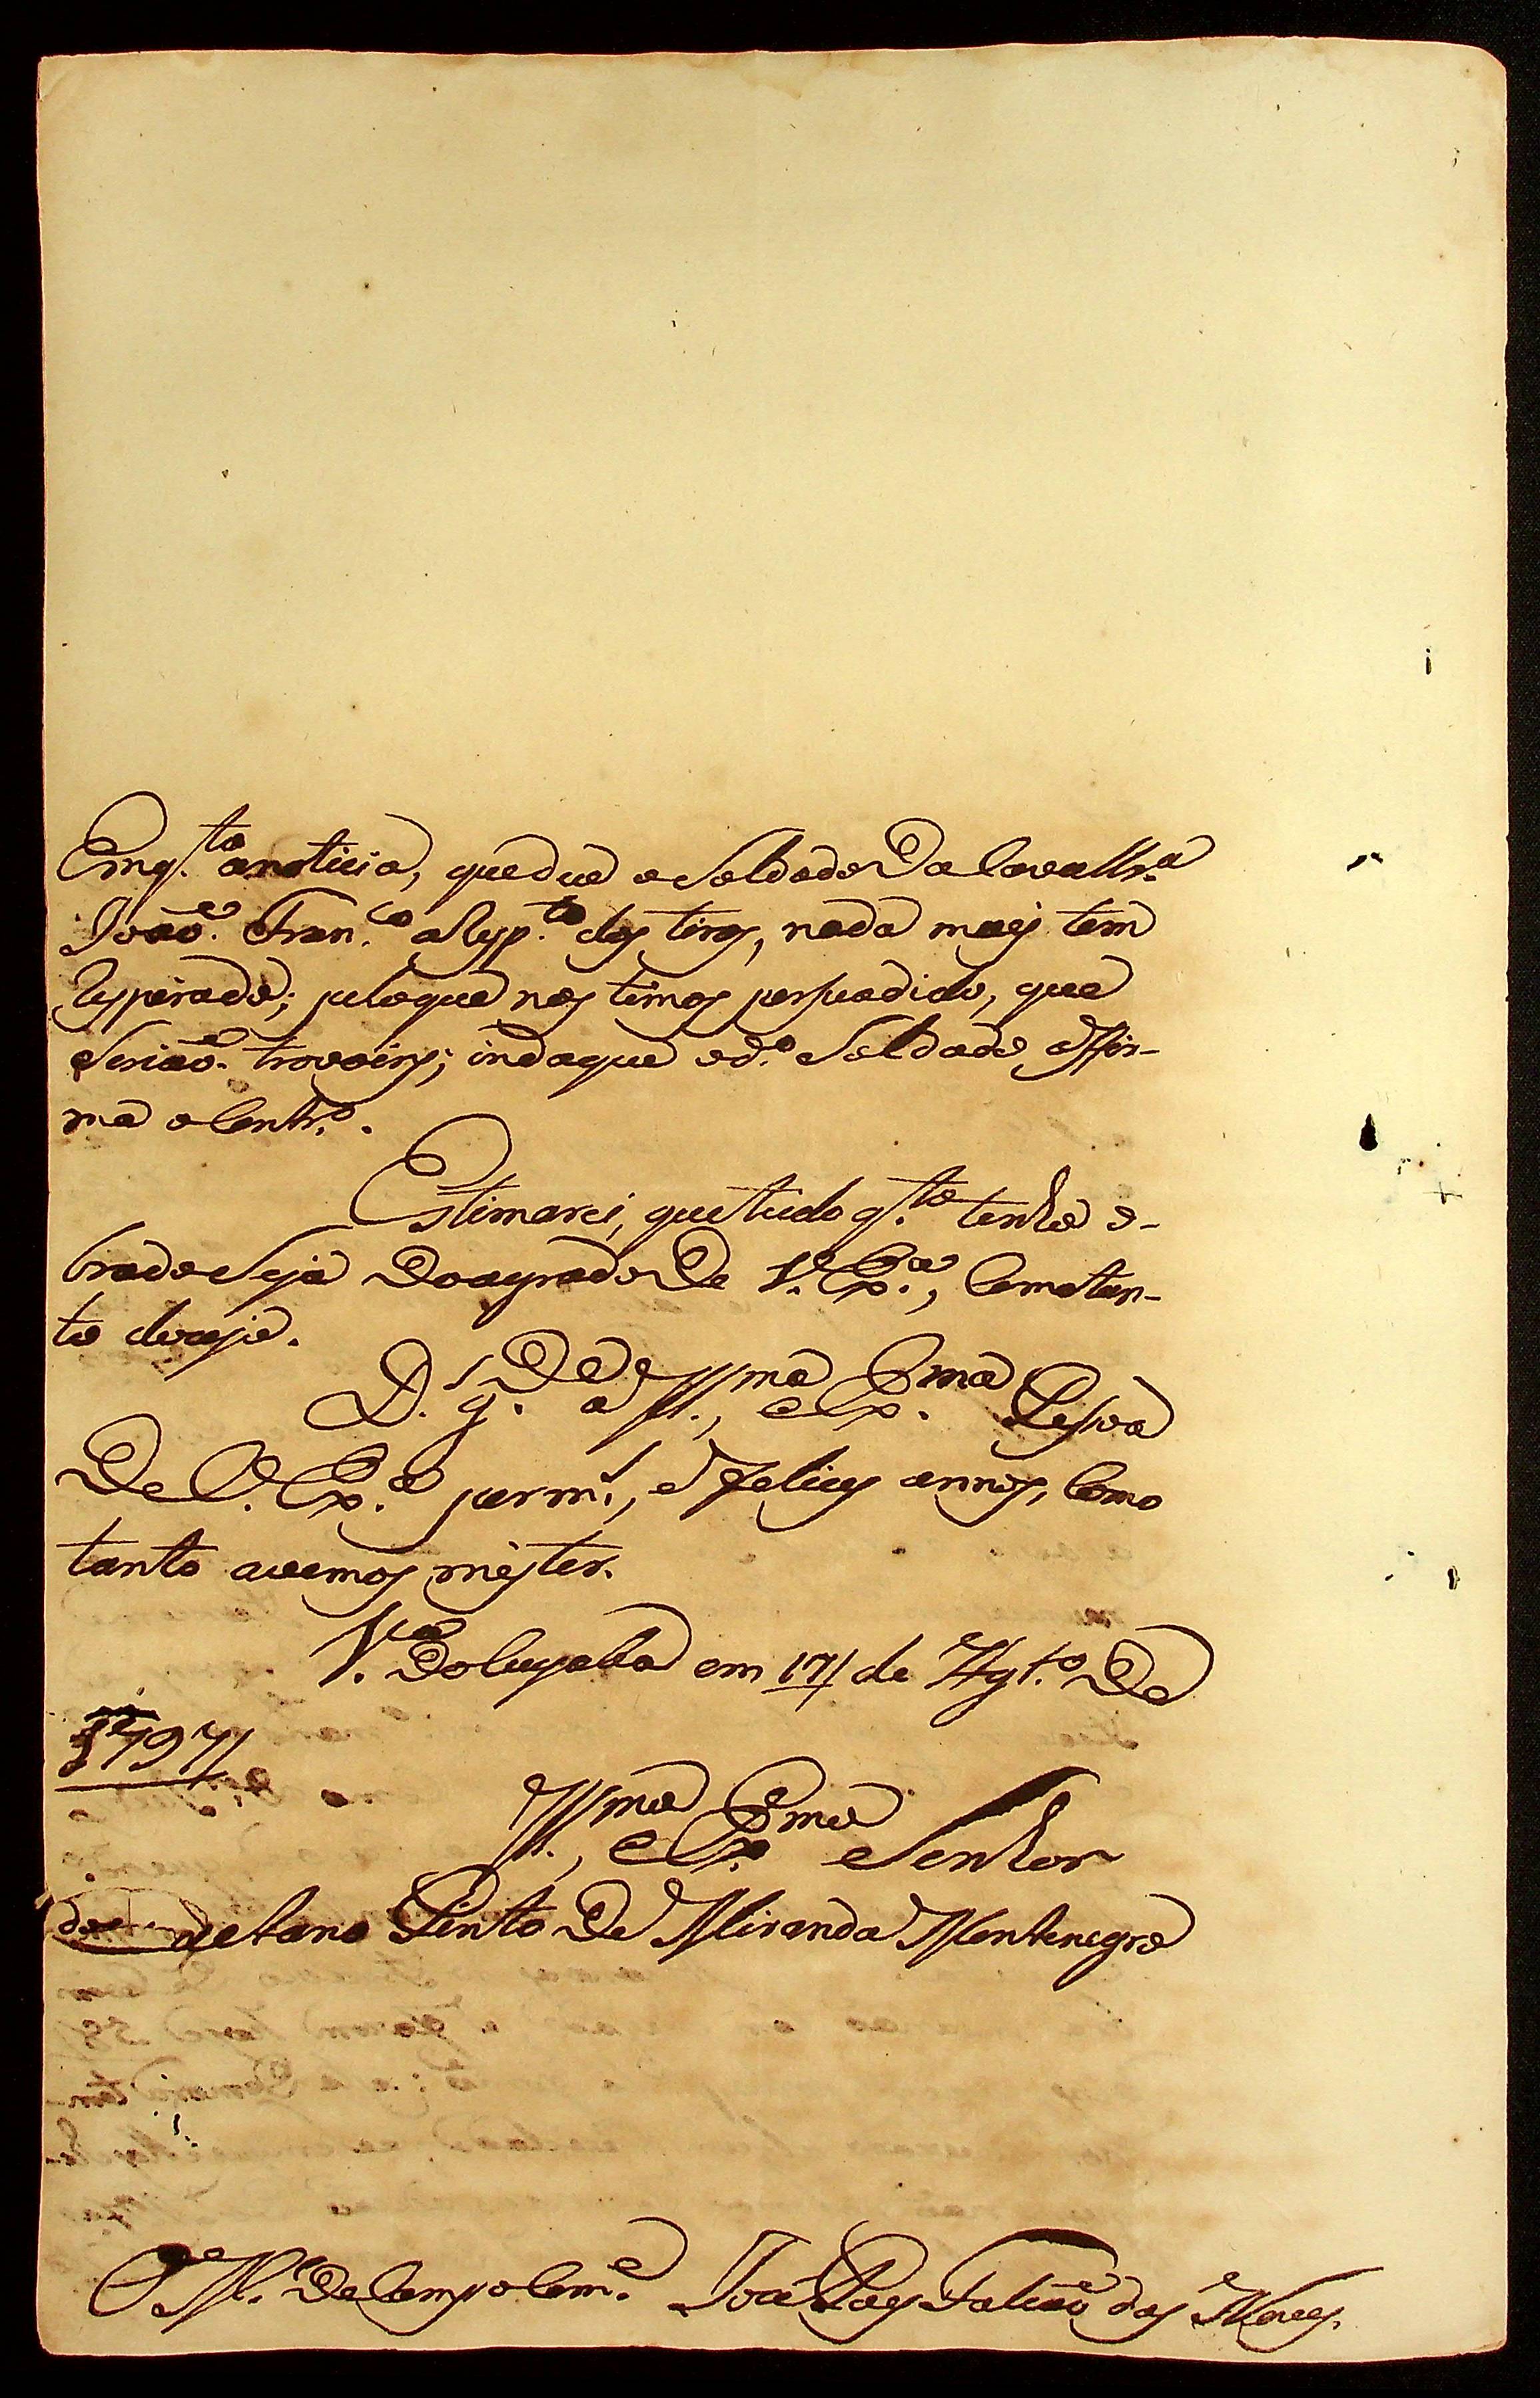 Emq.to anoticia, quedeo o Soldado Da Cavallr.a
João Fran.co aResp.to dos tiros, nada mais tem
Resperado; peloque nos temos persuadido, que
Serião trovoins; indaque od.o Soldado affir-
ma oContr.o.
Estimarei, quetudo q.to tenho o-
brado Seja Doagrado De V. Ex.ca, Comotan-
to dezejo.
D.s g.de a Ill.ma, e Ex.ma Pesoa
De V. Ex.ca por m.s, e felices annos, Como
tanto avemos mister.
V.a DoCuyaba em 17 de Agt.o De
1797
Ill.mo, e Ex.mo Senhor
Caetano Pinto De Miranda Montenegro
O M.e DeCampo Com.e José Paes Falcão das Neves.